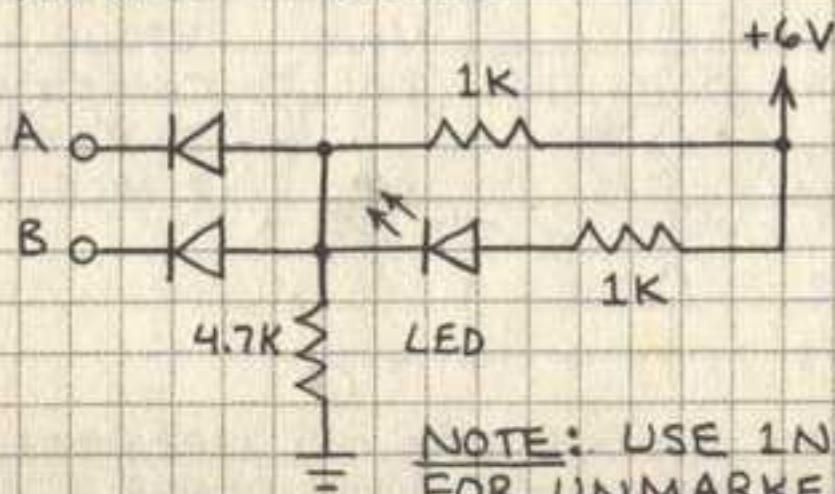 +6V
1K
A
B
1K
4.7K
LED
NOTE: USE 1N
FOR UNMARKE